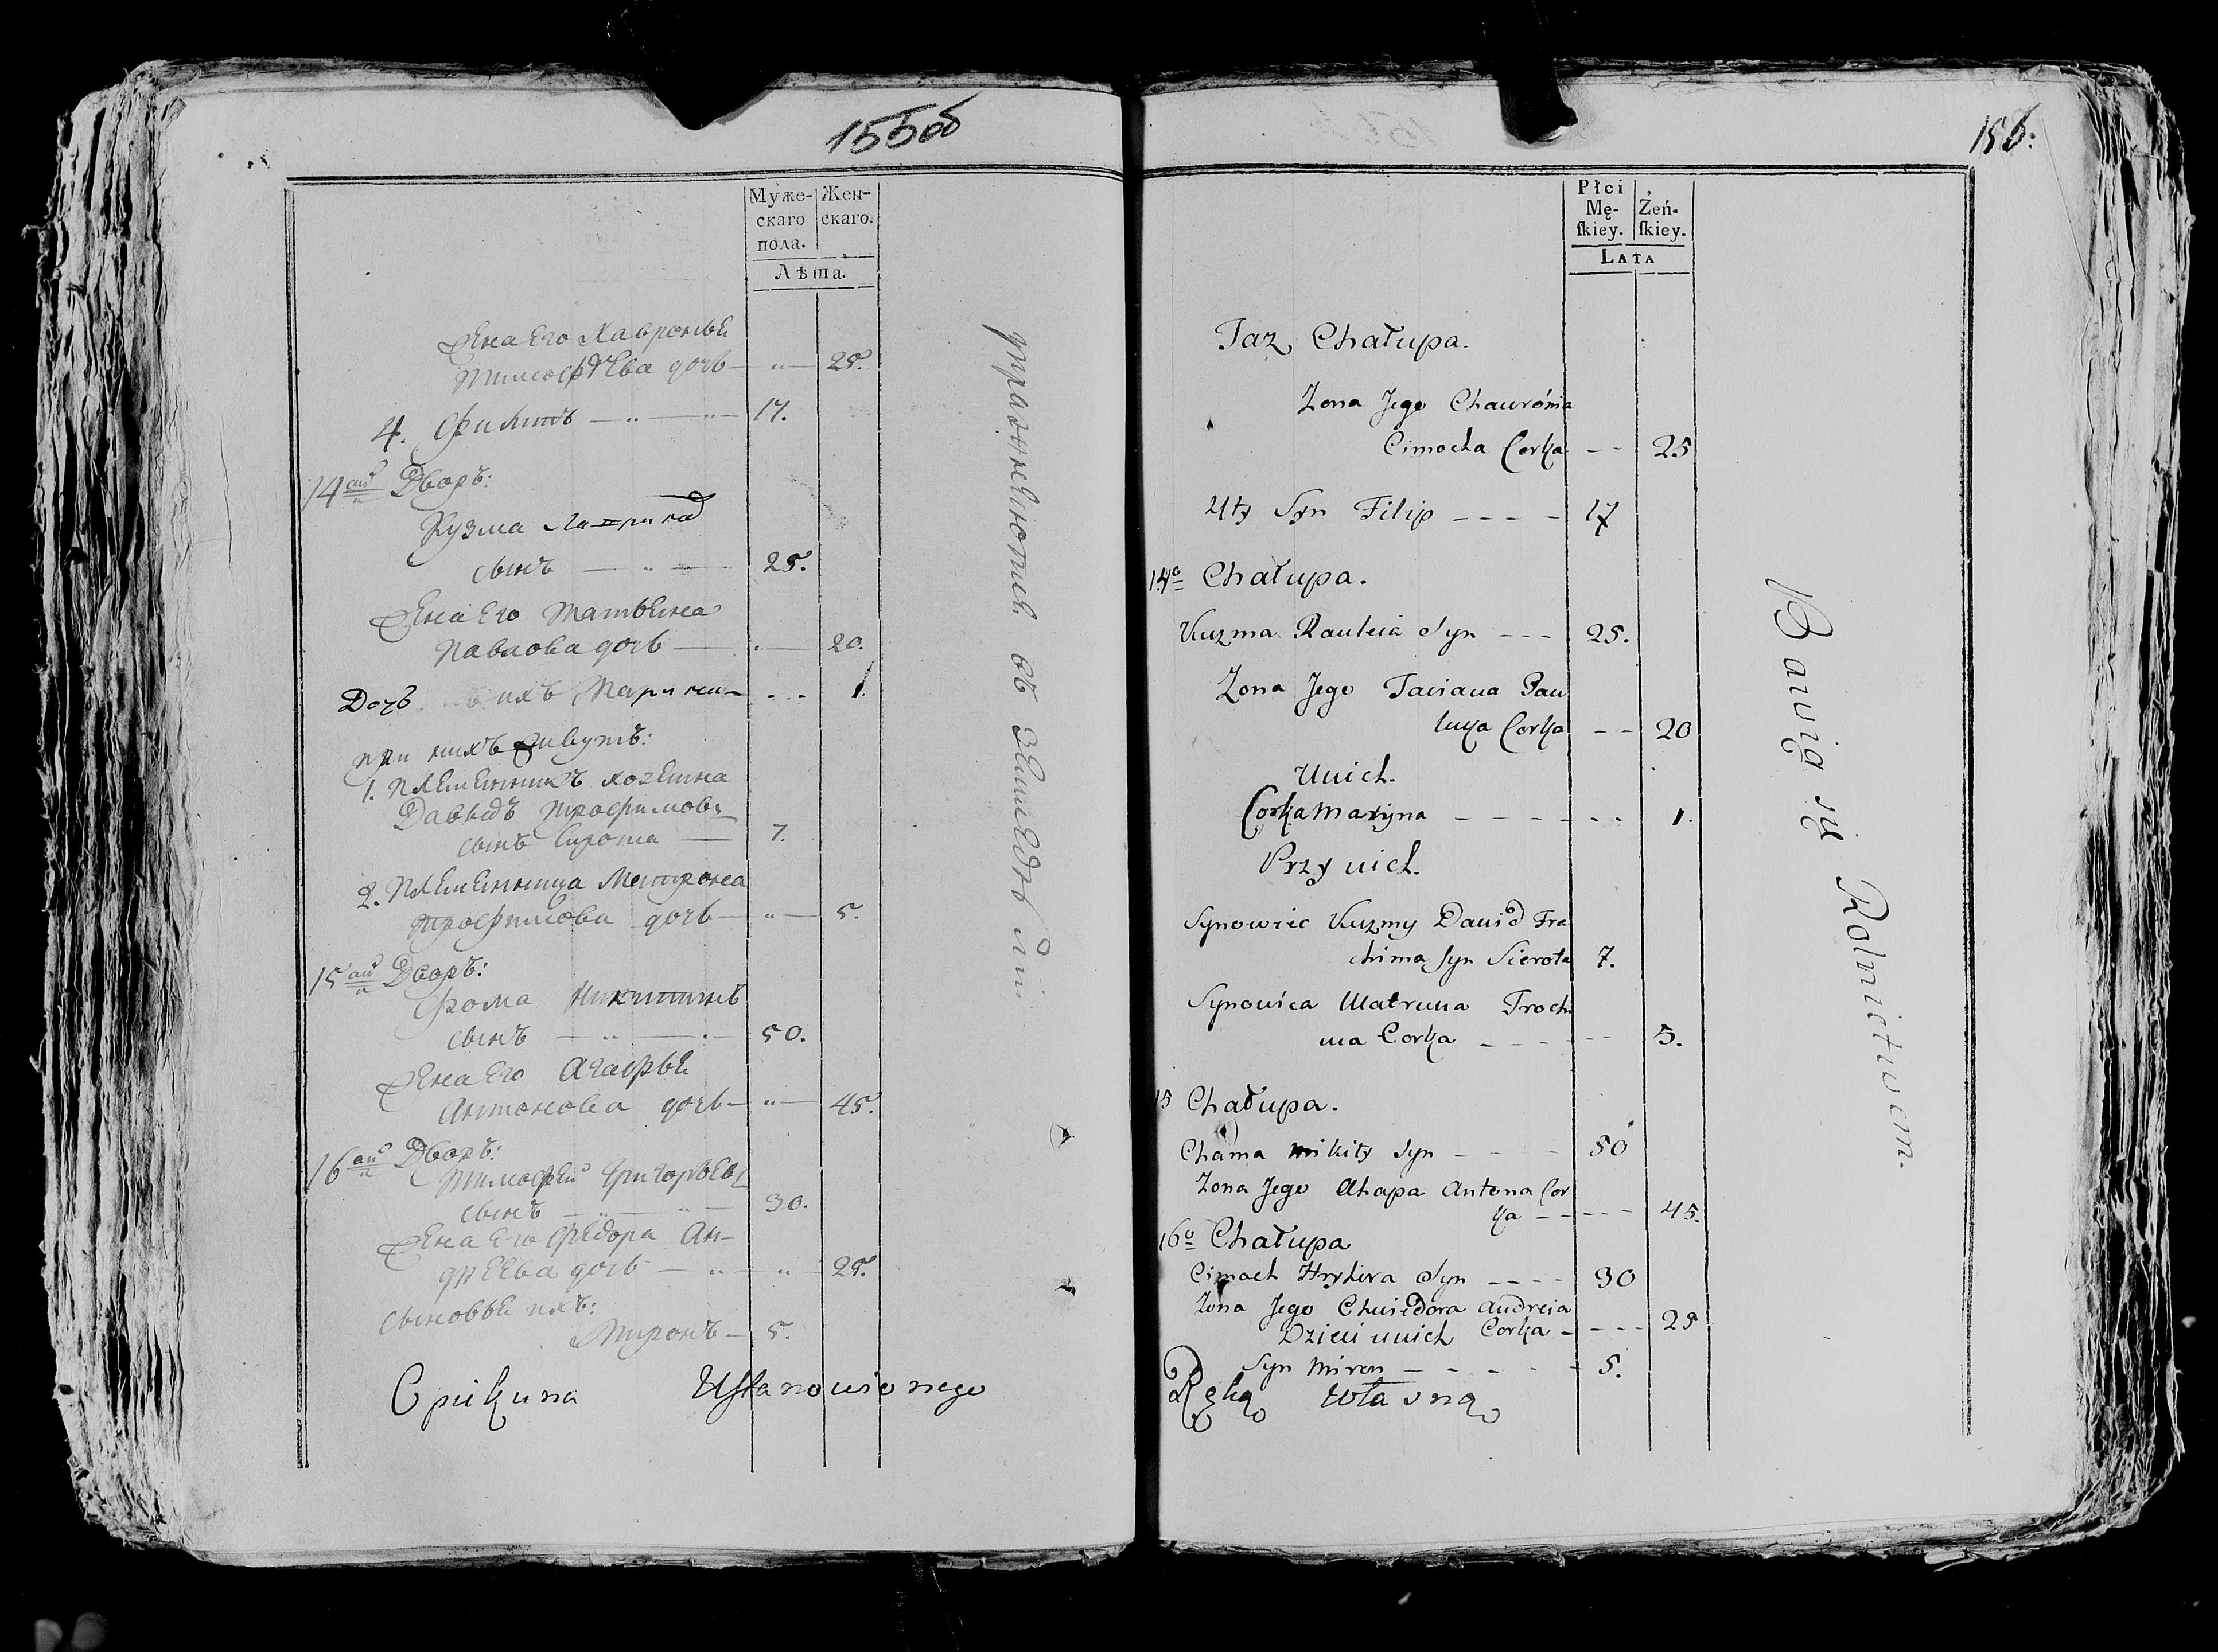 155об
Муже-
скаго
пола.
Жен-
скаго.
Лѣта.
жена его Хавронья
Тимофѣева дочь — „ — 25.
4. Филипъ — „ — „ — 17.
14ый Дворъ:
Кузма
сынъ — „ — 25.
жена его Татьяна
Павлова дочь — „ — 20.
Дочь ихъ Марина - - - 1.
при нихъ живутъ:
1. племянникъ хозяина
Давыдъ Трофимовъ
сынъ сирота — 7.
2. Племянница Матрона
Трофимова дочь — „ — 5.
15ый Дворъ:
Фома Никитинъ
сынъ — „ — „ — 50.
жена его Агафья
Антонова дочь — „ — 45.
16ый Дворъ:
Тимофей Григорьевъ
сынъ — „ — „ — 30.
жена его Федора Ан-
дреева дочь — „ — „ — 25.
сыновья ихъ:
Миронъ — 5.
упражняются въ земледѣлии.
Opikuna Ustanowionego
156.
Płci
Mę-
skiey.
Żeń-
skiey.
Lata
Taz Chałupa.
Zona Jego Chauronia
Cimocha Corka - - 25
4ty Syn Filip - - - - 17
14o Chałupa.
Kuzma Rauleia Syn - - - 25.
Zona Jego Taciana Pau
luka Corka - - 20
U nich.
Corka Maryna - - - - - - 1.
Przy nich.
Synowiec Kuzmy Dawid Tra
chima Syn Sierota 7.
Synowica Matruna Troch
ma Corka - - - - - 5.
15 Chałupa.
Chama Mikity Syn - - - 50
Zona Jego Ahapa Antona Cor
ka - - - - - 45.
16o Chałupa
Cimoch Hryhora Syn - - - - 30
Zona Jego Chwiedora Andreia
Dzieci u nich Corka - - - - 25
Syn Miron - - - - - 5.
Ręką własną
Bawią się Rolnictwem.